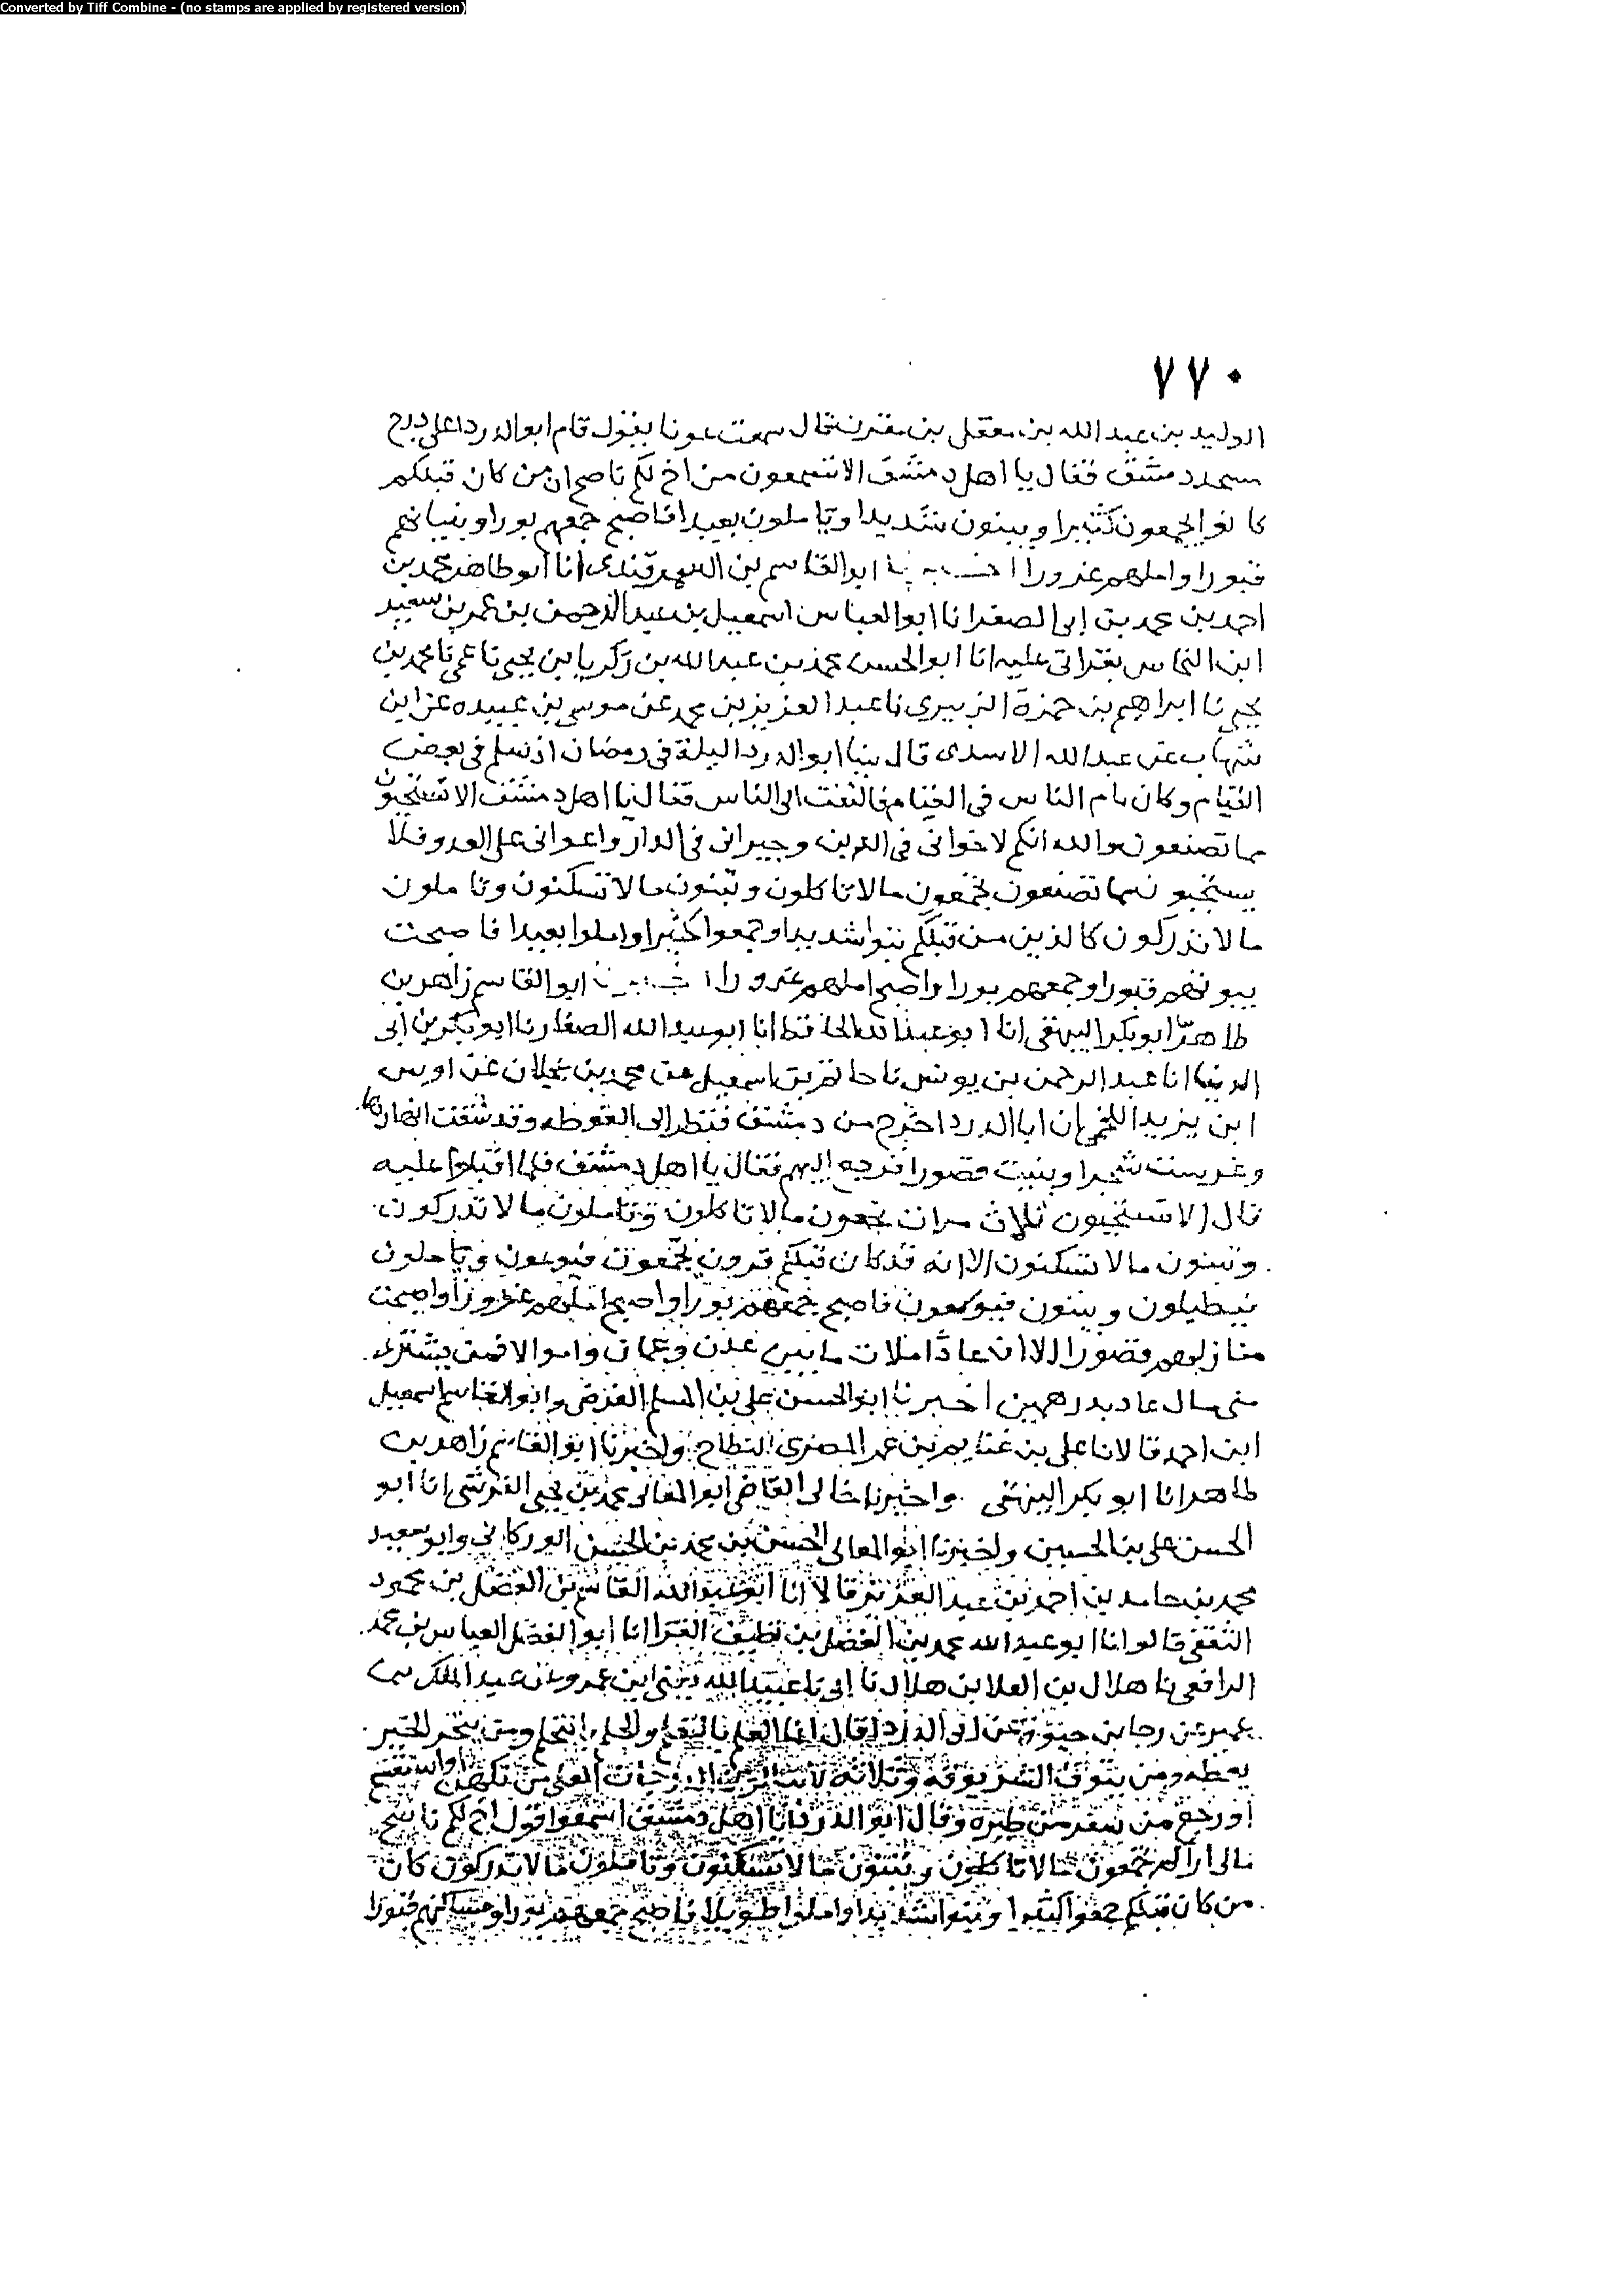 Converted by Tiff Combine - (no stamps are applied by registered version)
٧٧٠
الوليد بن عبد الله بن معقل بن مقرن قال سمعت عونا يقول قام ابو الدردا على درج
مسجد دمشق فقال يا اهل دمشق الا تسمعون من اخ لكم ناصح ان من كان قبلكم
كانوا يجمعون كثيرا ويبنون شديدا وياملون بعيدا فاصبح جمعهم بورا وبنيانهم
قبورا واملهم غرورا اخبرنا ابو القاسم بن السمرقندي انا ابو طاهر محمد بن
احمد بن محمد بن ابي الصقر انا ابو العباس اسمعيل بن عبد الرحمن بن عمر بن سعيد
ابن النحاس بقراتي عليه انا ابو الحسن محمد بن عبد الله بن زكريا بن يحيى نا عمي نا محمد بن
يحيى نا ابراهيم بن حمزة الزبيري نا عبد العزيز بن محمد عن موسى بن عبيده عن ابن
شهاب عن عبد الله الاسدي قال بينا ابو الدردا ليلة في رمضان اذ سلم في بعض
القيام وكان يام الناس في القيام فالتفت الى الناس فقال يا اهل دمشق الا تستحيون
مما تصنعون والله انكم لاخواني في الدين وجيراني في الدار واعواني على العدو فلا
يستحيو نما تصنعون تجمعون مالا تاكلون وتبنون مالا تسكنون وتاملون
ما لا تدركون كالذين من قبلكم بنوا شديدا وجمعوا كثيرا واملوا بعيدا فاصبحت
بيوتهم قبورا وجمعهم بورا واصبح املهم غرورا اخبرنا ابو القاسم زاهر بن
طاهر ابو بكر البيهقي انا ابو عبد الله الحافظ انا ابو عبد الله الصفار نا ابو بكر بن ابي
الدنيا انا عبد الرحمن بن يونس نا حاتم بن اسمعيل عن محمد بن عجلان عن اويس
ابن يزيد اللخمي ان ابا الدردا خرج من دمشق فنظر الى الغوطه وقد شققت انهارها
وغرست شجرا وبنيت قصورا فرجع اليهم فقال يا اهل دمشق فلما اقبلوا عليه
قال الا تستحيون ثلاث مرات تجمعون مالا تاكلون وتاملون ما لا تدركون
وتبنون مالا تسكنون الا انه قد كان قبلكم قرون يجمعون فيوعون وياملون
فيطيلون ويبنون فيوثقون فاصبح جمعهم بورا واصبح املهم غرورا واصبحت
منازلهم قصورا الا ان عادا ملات ما بين عدن وعمان واموالا فمن يشتري
مني مال عاد بدرهمين اخبرنا ابو الحسن علي بن المسلم الفرضي وابو القاسم اسمعيل
ابن احمد قالا نا علي بن غنايم بن عمر المصري واخبرنا ابو القاسم زاهر بن
طاهر انا ابو بكر البيهقي واخبرنا خالي القاضي ابو المعالي محمد بن يحيى القرشي انا ابو
الحسن علي بن الحسين واخبرنا ابو المعالي الحسن بن محمد بن الحسن الوركاني وابو سعيد
محمد بن حامد بن احمد بن عبد العزيز قالا انا ابو عبد الله القاسم بن الفضل بن محمود
الثقفي قالوا انا ابو عبد الله محمد بن الفضل بن نظيف الفرا انا ابو الفضل العباس بن محمد
الرافعي نا هلال بن العلا بن هلال نا ابي نا عبيد الله يعني ابن عمرو عن عبد الملك بن
عمير عن رجا بن حيوة عن ابي الدردا قال انما العلم بالتعلم والحلم بالتحلم ومن يتحر الخير
يعطه ومن يتوق الشر يوقه وثلاثة لا الدرجات العلى من تكهن او استقسم
او رجع من سفر من طيرة وقال ابو الدردا يا اهل دمشق اسمعوا قول اخ لكم ناصح
مالي اراكم تجمعون مالا تاكلون وتبنون مالا تسكنون وتاملون مالا تدركون كان
من كان قبلكم جمعوا كثيرا وبنوا شديدا واملوا طويلا فاصبح جمعهم بورا ومساكنهم قبورا